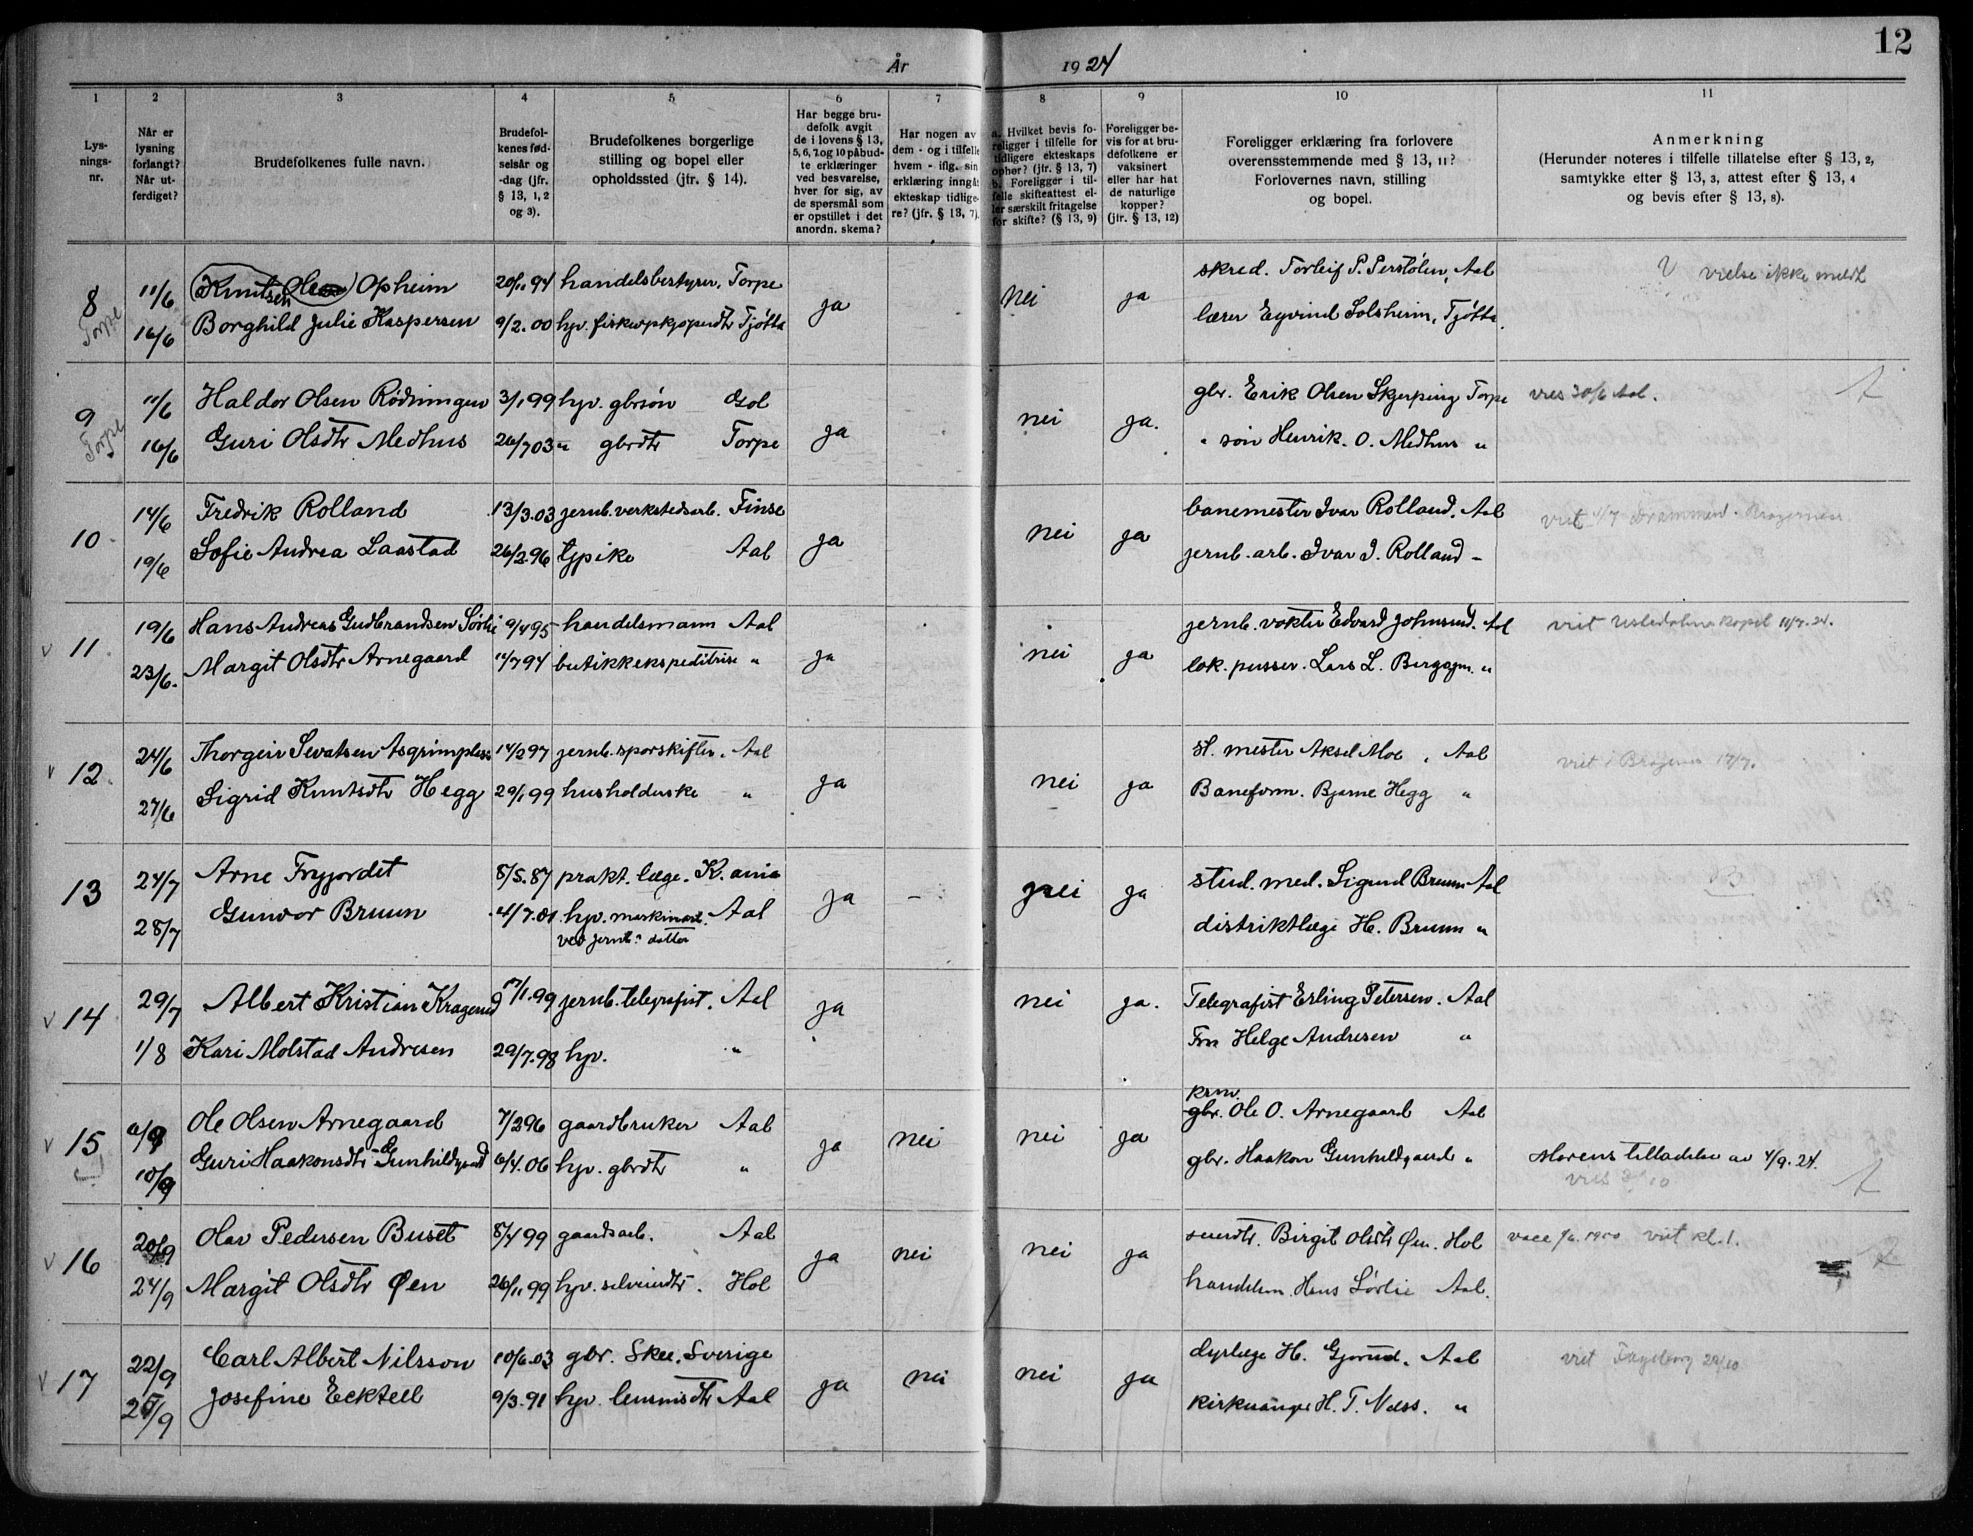 12
År 1924
1 2 3 4 5 6 7 8 9 10 11
Lys-
nings-
nr.
Når er
lysning
forlangt?
Når ut-
ferdiget?
Brudefolkenes fulle navn.
Brudefol-
kenes fød-
selsår og
-dag (jfr.
§ 13, 1, 2
og 3).
Brudefolkenes borgerlige
stilling og bopel eller
opholdssted (jfr. § 14).
Har begge bru-
defolk avgit
de i lovens § 13,
5, 6, 7 og 10 påbud-
te erklæringer
ved besvarelse,
hver for sig, av
de spørsmål som
er opstillet i det
anordn. skema?
Har nogen av
dem - og i tilfelle
hvem - iflg. sin
erklæring inngåt
ekteskap tidlige-
re? (jfr. § 13, 7).
a. Hvilket bevis fo-
religger i tilfelle for
tidligere ekteskaps
ophør? (jfr. § 13, 7)
b. Foreligger i til-
felle skifteattest el-
ler særskilt fritagelse
for skifte? (§ 13, 9)
Foreligger be-
vis for at bru-
defolkene er
vaksinert
eller har hat
de naturlige
kopper?
(jfr. § 13, 12)
Foreligger erklæring fra forlovere
overensstemmende med § 13, 11?
Forlovernes navn, stilling
og bopel.
Anmerkning
(Herunder noteres i tilfelle tillatelse efter § 13, 2,
samtykke efter § 13, 3, attest efter § 13, 4
og bevis efter § 13, 8).
8 Torpe 11/6 Knutsen Olsen Opheim 20/11 94 handelsbestyrer, Torpe ja nei ja skred. Torleif P. Perstølen, Aal vielse ikke meldt
16/6 Borghild Julie Kaspersen 9/2. 00 hp. fiskeopkjøperdtr Tjøtta lærer Eyvind Solsheim, Tjøtta.
9 Torpe 11/6 Haldor Olsen Rødningen 3/1 99 hp. gbrsøn Gol ja nei ja. gbr. Erik Olsen Skjerping Torpe vies 30/6 Aal.
16/6 Guri Olsdtr Medhus 26/7 03 " gbrdtr Torpe " søn Henrik. O. Medhus "
10 14/6 Fredrik Rolland 13/3.03 jernb. verkstedsarb. Finse ja nei ja banemester Ivar Rolland. Aal viet 4/7 Drammen - Bragernes.
19/6 Sofie Andrea Laastad 26/2.96 tjpike Aal jernb. arb. Ivar I. Rolland -
v 11. 19/6 Hans Andreas Gudbrandsen Sørlie 9/4 95 handelsmann Aal ja nei ja jernb. vokter Edvard Johnsrud. Aal viet Ustedalens kapel 11/7. 24.
23/6. Margit Olsdtr Arnegaard 11/7 94 butikkekspeditrise " lok. pusser. Lars L. Bergsjm. "
v 12. 24/6 Thorgeir Sevatsen Asgrimplass 14/2 97 jernb. sporskifter. Aal ja nei ja st. mester Aksel Moe, Aal viet i Bragernes 17/7.
27/6 Sigrid Knutsdtr Hegg 29/1 99 husholderske " Baneform. Bjarne Hegg "
13 24/7 Arne Fryjordet 8/5. 87 prakt. læge. K.ania ja - nei ja stud. med. Sigurd Bruun Aal
28/7 Gunvor Bruun 4/7. 01. hp. maskinast. Aal distriktlæge H. Bruun "
ved jernb. datter
v 14 29/7 Albert Kristian Kragerud 17/1. 99 jernb. telegrafist. Aal ja nei ja. Telegrafist Erling Petersen. Aal
1/8 Kari Molstad Andresen 29/7. 98 hp. " Fru Helge Andresen "
v 15 6/9 Ole Olsen Arnegaard 7/2 96 gaardbruker Aal ja nei nei ja gbr. Ole O. Arnegaard Aal
10/9 Guri Haakonsdtr Gunhildgaard 6/4. 06 hp. gbrdtr " gbr. Haakon Gunhildgaard " Morens tilladelse av 4/9. 24.
v 16 20/9 Olav Pedersen Buset 8/4 99 gaardsarb. Aal ja nei nei ja Birgit Olsdtr Øen. Hol viet kl. 1.
24/9 Margit Olsdtr Øen 26/11 99 hp. selveierdtr. Hol handelsm. Hans Sørlie Aal.
v 17 22/9 Carl Albert Nilsson 10/6.03 gbr. Skee, Sverige ja nei nei ja dyrlæge H. Gjerud. Aal viet
25/9 Josefine Ecktell 9/3. 91 hp. Aal kirkesanger H. T. Næss. "